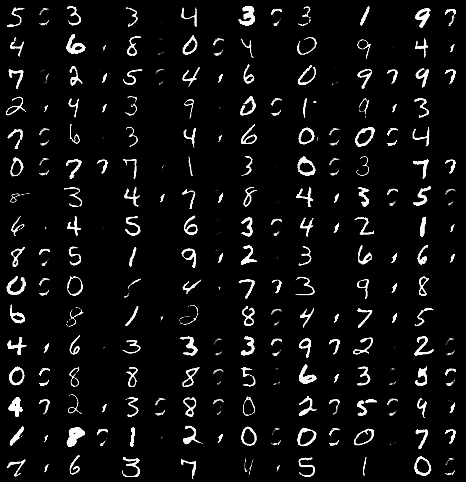 5 3 3 4 3 3 1 9
4 6 8 0 4 0 9 4
7 2 5 4 6 0 9 9
2 4 3 9 0 1 9 3
7 6 3 4 6 0 0 4
0 7 7 1 3 0 3 7
8 3 4 7 8 4 3 5
6 4 5 6 3 4 2 1
8 5 1 9 2 3 6 6
0 0 5 4 7 3 9 8
6 8 1 2 8 4 7 5
4 6 3 3 3 9 2 2
0 8 8 8 5 6 3 5
4 2 3 8 0 2 5 9
1 8 1 2 0 0 0 7
7 6 3 7 4 5 1 0